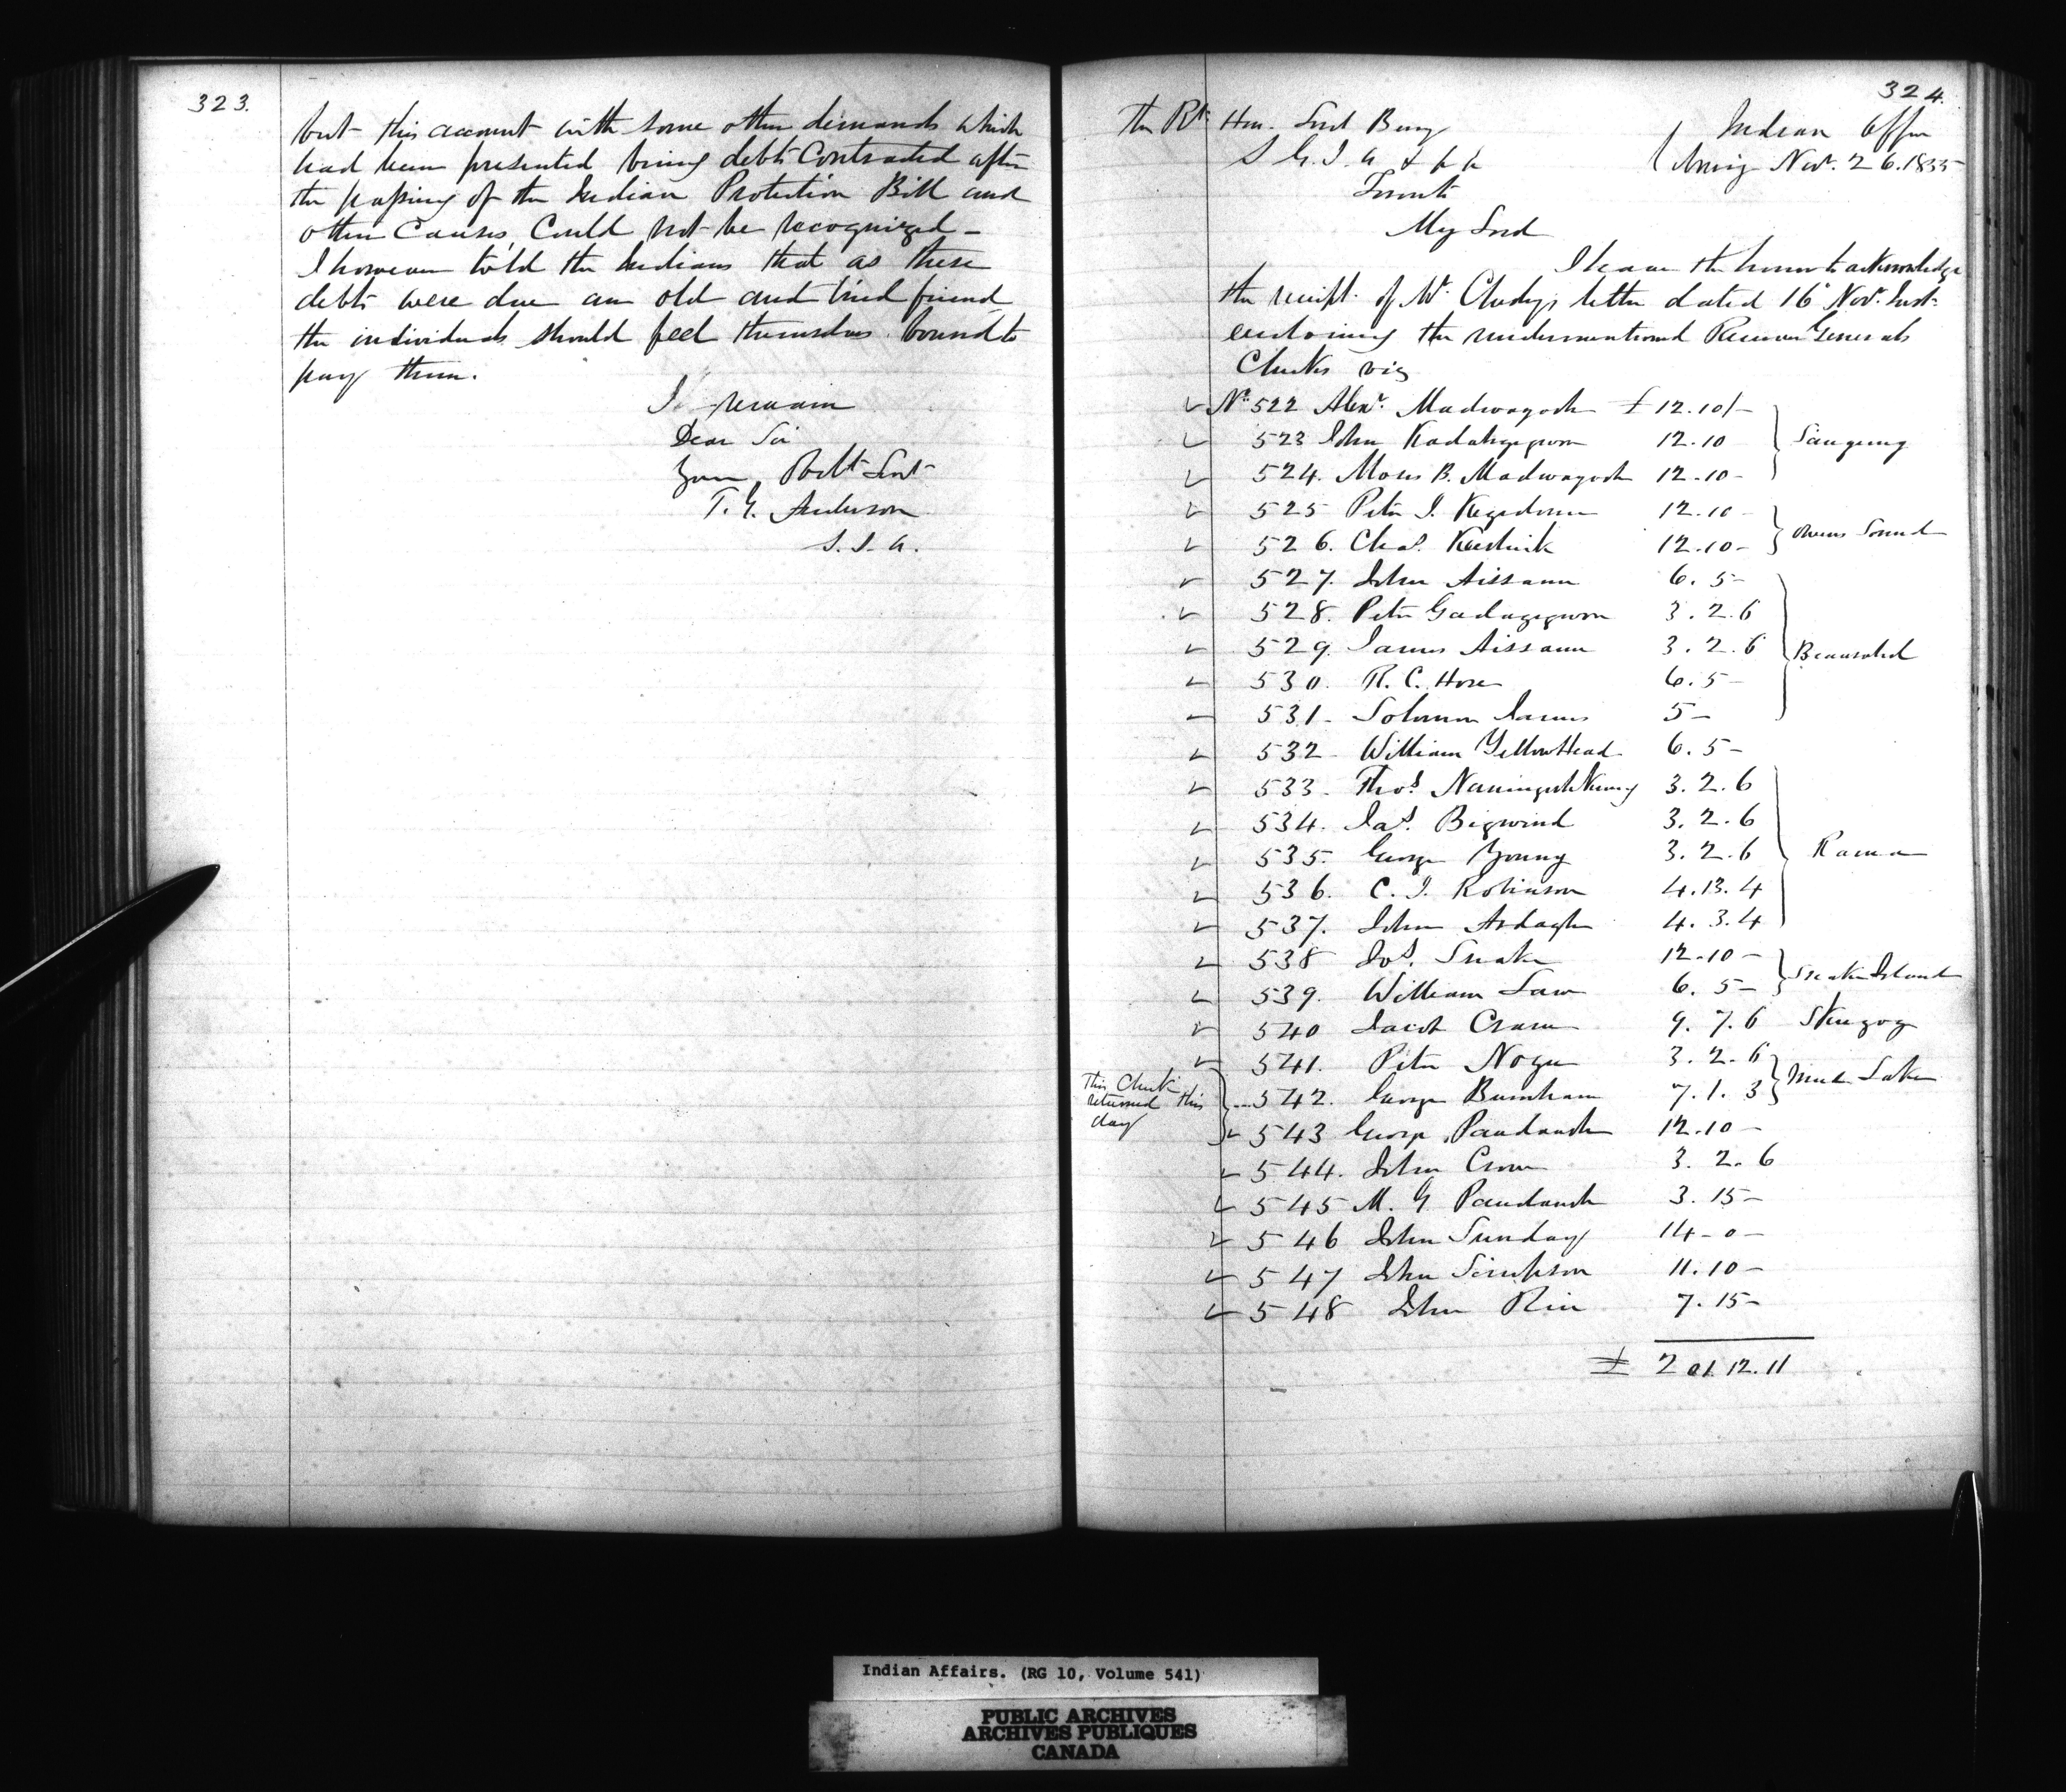 323.
but this account with some other demands which
had been presented being debts Contracted after
the passing of the Indian Protection Bill and
other Causes Could not be recognized -
I however told the Indians that as these
debts were due an old and tried friend
the individuals should feel themselves bound to
pay them.
I remain
Dear Sir
Your Obdt Servt
T. G. Anderson
S. I. A.
324.
The Rt. Hon. Lord Bury
S G. I. A & &
Toronto
Indian Office
Nov. 26. 1855
My Lord
I have the honor to acknowledge
the receipt of Mr. letter dated 16 Nov. Inst.
enclosing the undermentioned Receiver Generals
Checks viz
No. 522 Alexr. Madwayosh £ 12.10/-
523 John Kadahgegwon 12.10
524. Moses B. Madwayosh 12.10-
Saugeeng
525 Peter J. Kegedonce 12.10-
526. Chas. Keeshick 12.10-
Owens Sound
527. John Aissance 6. 5-
528. Peter Gadagegwon 3. 2. 6
529. James Aissance 3. 2. 6
530. R. C. Hore 6. 5-
531- Solomon James 5-
Beausoleil
532- William YellowHead 6. 5-
533- Thos. 3. 2. 6
534. Jas. Bigwind 3. 2. 6
535. George Young 3. 2. 6
536. C. J. Robinson 4. 13. 4
537. John Ardagh 4. 3. 4
Rama
538 Jos. Snake 12.10-
539. William Law 6. 5-
Snake Island
540 Jacob Crane 9. 7. 6 Skugog
541. Peter Nogee 3. 2. 6
This Check
returned this
day
542. George Burnham 7. 1. 3
Mud Lake
543 George Paudaush 12.10-
544. John Crow 3. 2. 6
545 M. G. Paudaush 3. 15-
546 John Sunday 14-0-
547 John Simpson 11. 10-
548 John Rice 7. 15-
£ 201.12.11
Indian Affairs. (RG 10, Volume 541)
PUBLIC ARCHIVES
ARCHIVES PUBLIQUES
CANADA